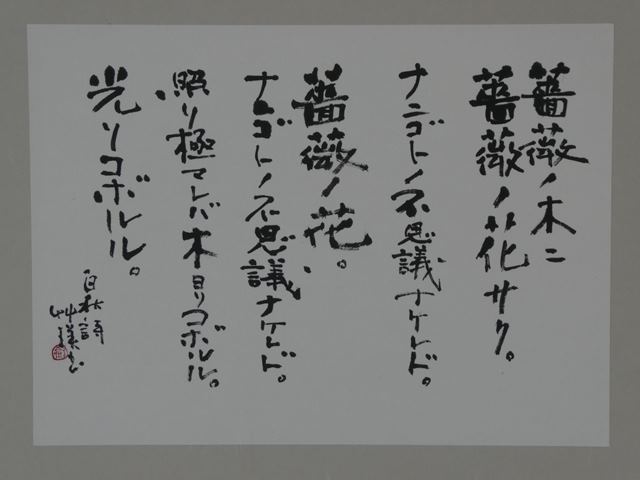 薔薇ノ木ニ
薔薇ノ花サク。
ナニゴトノ不思議ナケレド。
薔薇ノ花。
ナニゴトノ不思議ナケレド。
照リ極マレバ木ヨリコボルル。
光リコボルル。
白秋詩